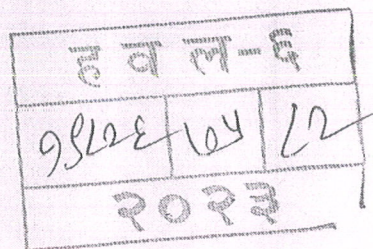 ह व ल - ६
१९८२६ ७५ ८२
२०२३